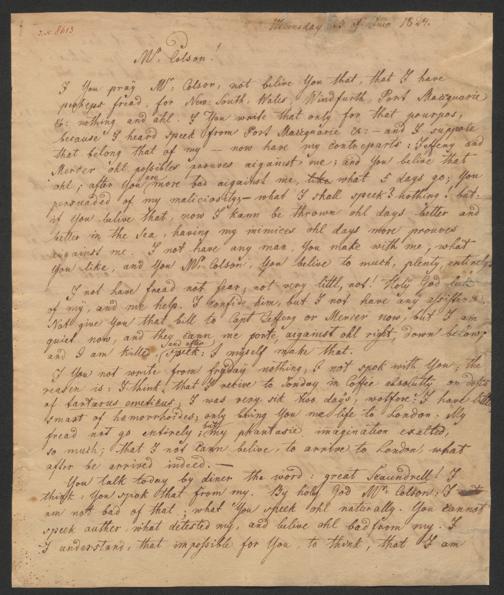 Wenesday of Juno 1824.
Mr. Colson!
I You pray Mr. Colson, not belive You that, that I have
perheps fread, for New South Wales, Windfurth, Port Macquarie
&c: nothing and ohl. I You write that only for that pourpos,
because I heard speek from Port Macquarie &c: – and I suppose
that belong that of my – now have my conterparts: Jeffeny and
Mercer ohl possibles prouves against me; and You belive that
ohl; after You are more bad against me, like what 5 days go; You
persuaded of my maliciosity; – what I shall speek? nothing! but
if You belive that, now I kann be thrown ohl days better and
better in the Sea, having my inimices ohl days more prouves
against me. I not have any man, You make with me, what
You like, and You Mr. Colson, You belive to much, plenty, entirely
I not have fread not fear, not very littl, not! Holy God
of my, and me help. I confide him, but I not have any
Not give You that bill to Capt Jeffeny or Mercer now, but I am
quiet now, and they cann me porte, against ohl right, down below,
and I am killed, and after speek: I myself make that.
I You not write from frayday nothing, I not spok with You; the
reason is: I think, that I recive to Sonday in Coffee absolutly
of tartarus emeticus; I was very sik two days, I have
smast of hemorrhoides; only bring You me life to London. My
fread not go entirely; but my phantasie imagination exalted,
so much; that I not cann belive, to arrive to London what
after be arrived indeed. –
You talk today by diner the word: great Scaundrell! I
think, You spok that from my. By holy God Mr. Colson, I
am not bad of that; what You speek ohl naturally. You cannot
speek auther, what detested my, and belive ohl bad from my. I
I understand, that impossible for You to think, that I am